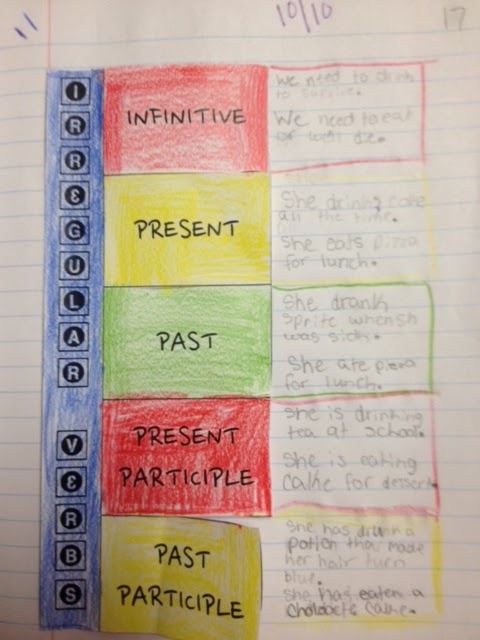 10/10
17
11
IRREGULAR VERBS
INFINITIVE
We need to drink
to survive.
We need to eat
or we'll die.
PRESENT
She drinks coke
all the time.
She eats pizza
for lunch.
PAST
She drank
Sprite when sh
was sick.
She ate pizza
for lunch.
PRESENT
PARTICIPLE
She is drinking
tea at school.
She is eating
cake for dessert.
PAST
PARTICIPLE
She has drunk a
potion that made
her hair turn
blue.
She has eaten a
cake.